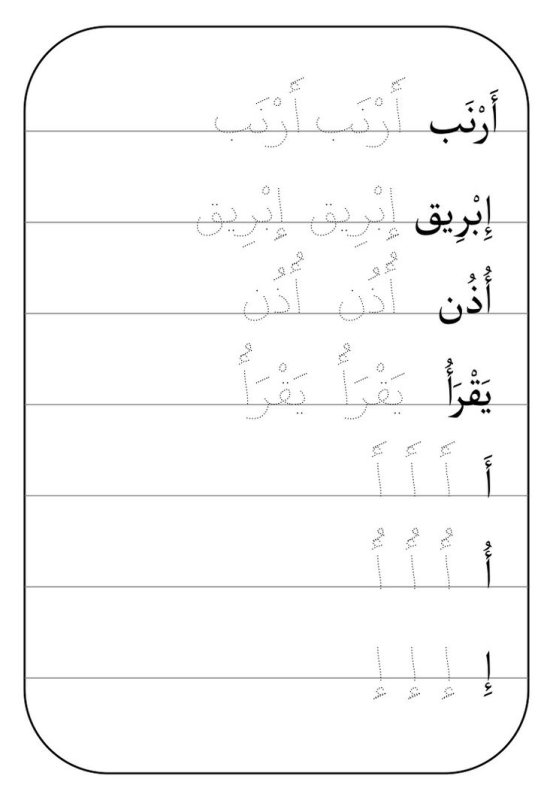 أَرْنَب أَرْنَب أَرْنَب
إِبْرِيق إِبْرِيق إِبْرِيق
أُذُن أُذُن أُذُن
يَقْرَأُ يَقْرَأُ يَقْرَأُ
أَ أَ أَ أَ
أُ أُ أُ أُ
إِ إِ إِ إِ